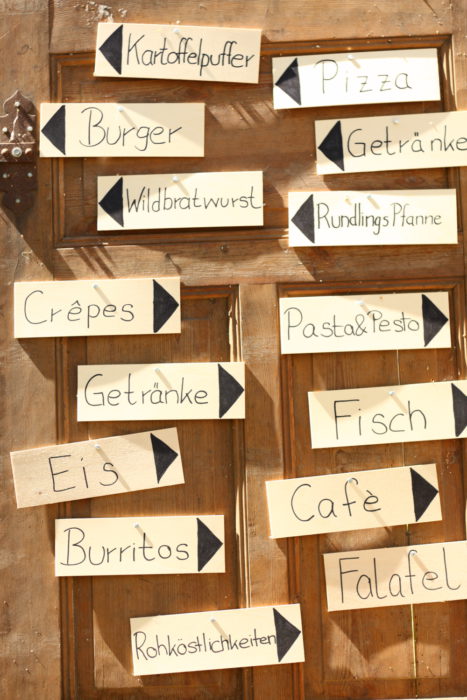 Kartoffelpuffer
Pizza
Burger
Getränke
Wildbratwurst
Rundlings Pfanne
Crêpes
Pasta&Pesto
Getränke
Fisch
Eis
Cafè
Burritos
Falafel
Rohköstlichkeiten